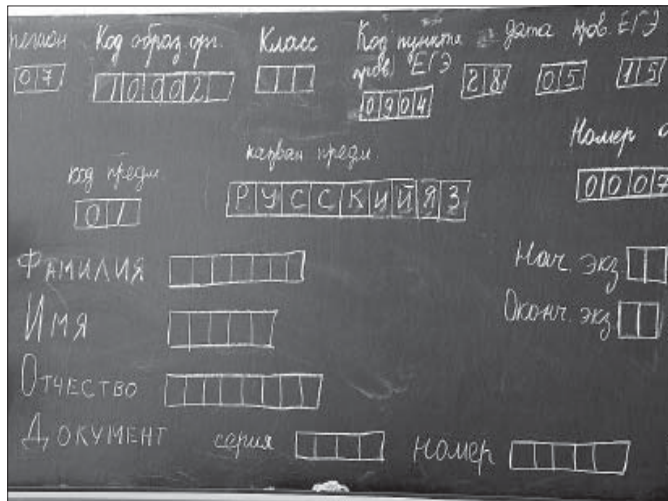 регион Код образ. орг. Класс Код пункта дата пров. ЕГЭ
пров. ЕГЭ
07 10002 0904 28 05 15
Номер
код предм. назван предм.
01 РУССКИЙ ЯЗ 0007
ФАМИЛИЯ Нач. экз
ИМЯ Оконч. экз
ОТЧЕСТВО
ДОКУМЕНТ серия номер